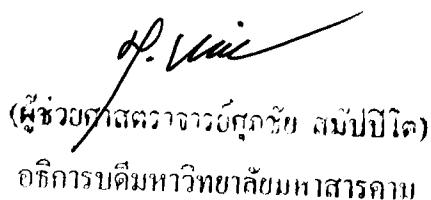 (ผู้ช่วยศาสตราจารย์ศุภชัย สมัปปิโต)
อธิการบดีมหาวิทยาลัยมหาสารคาม